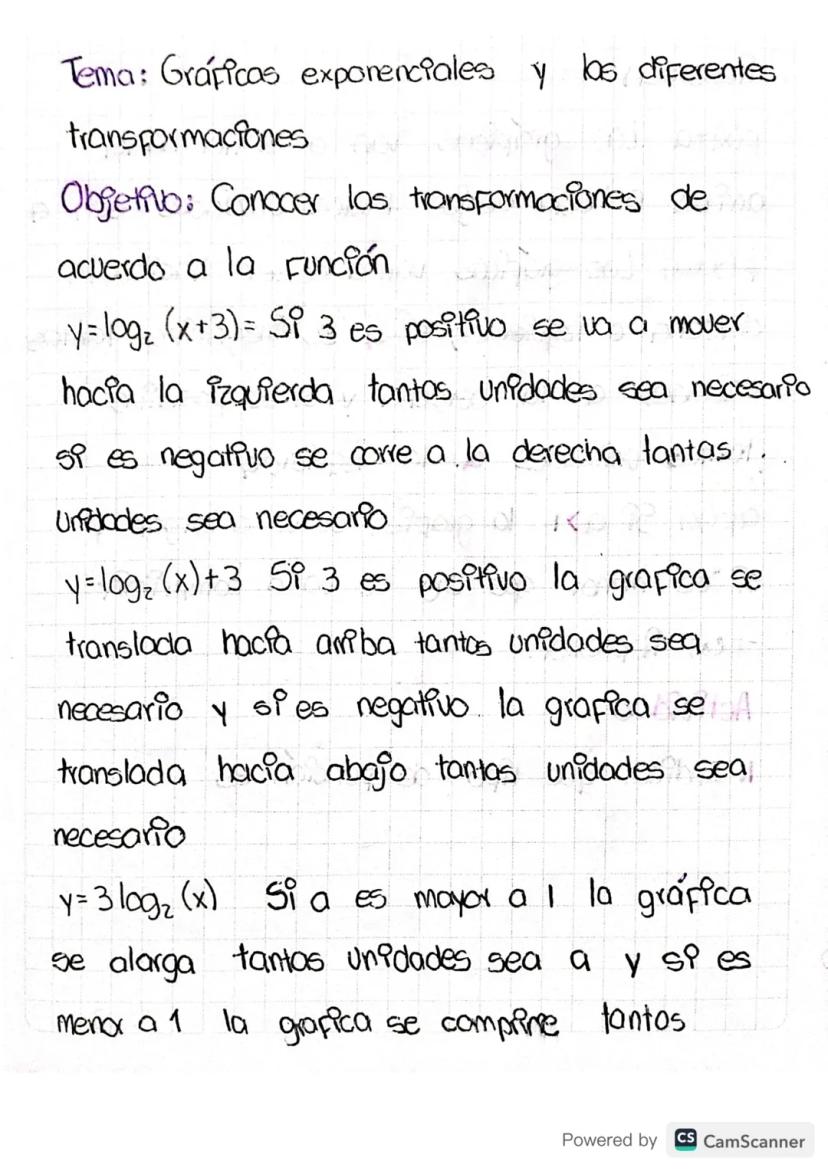 Tema: Gráficas exponenciales y las diferentes
transformaciones
Objetivo: Conocer las transformaciones de
acuerdo a la función
y=log₂ (x+3)= Si 3 es positivo se va a mover
hacia la izquierda tantas unidades sea necesario
si es negativo se corre a la derecha tantas
unidades sea necesario
y=log₂ (x)+3 Si 3 es positivo la grafica se
translada hacia arriba tantas unidades sea
necesario y si es negativo la grafica se
translada hacia abajo tantas unidades sea
necesario
y=3 log₂ (x) Si a es mayor a 1 la gráfica
se alarga tantas unidades sea a y si es
menor a 1 la grafica se comprime tantos
Powered by CS CamScanner